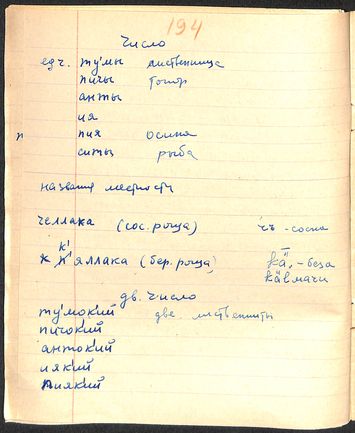 194
Число
ед ч. ту́мы лиственница
пичы топор
анты
ия
п пия осина
ситы рыба
название местности
челлака (сос. роща) чъ - сосна
к к' п'яллака (бер. роща) кӓ, - береза
кӓвмачи
дв. число
ту́мокий две лиственницы
пичокий
антокий
иякий
пиякий